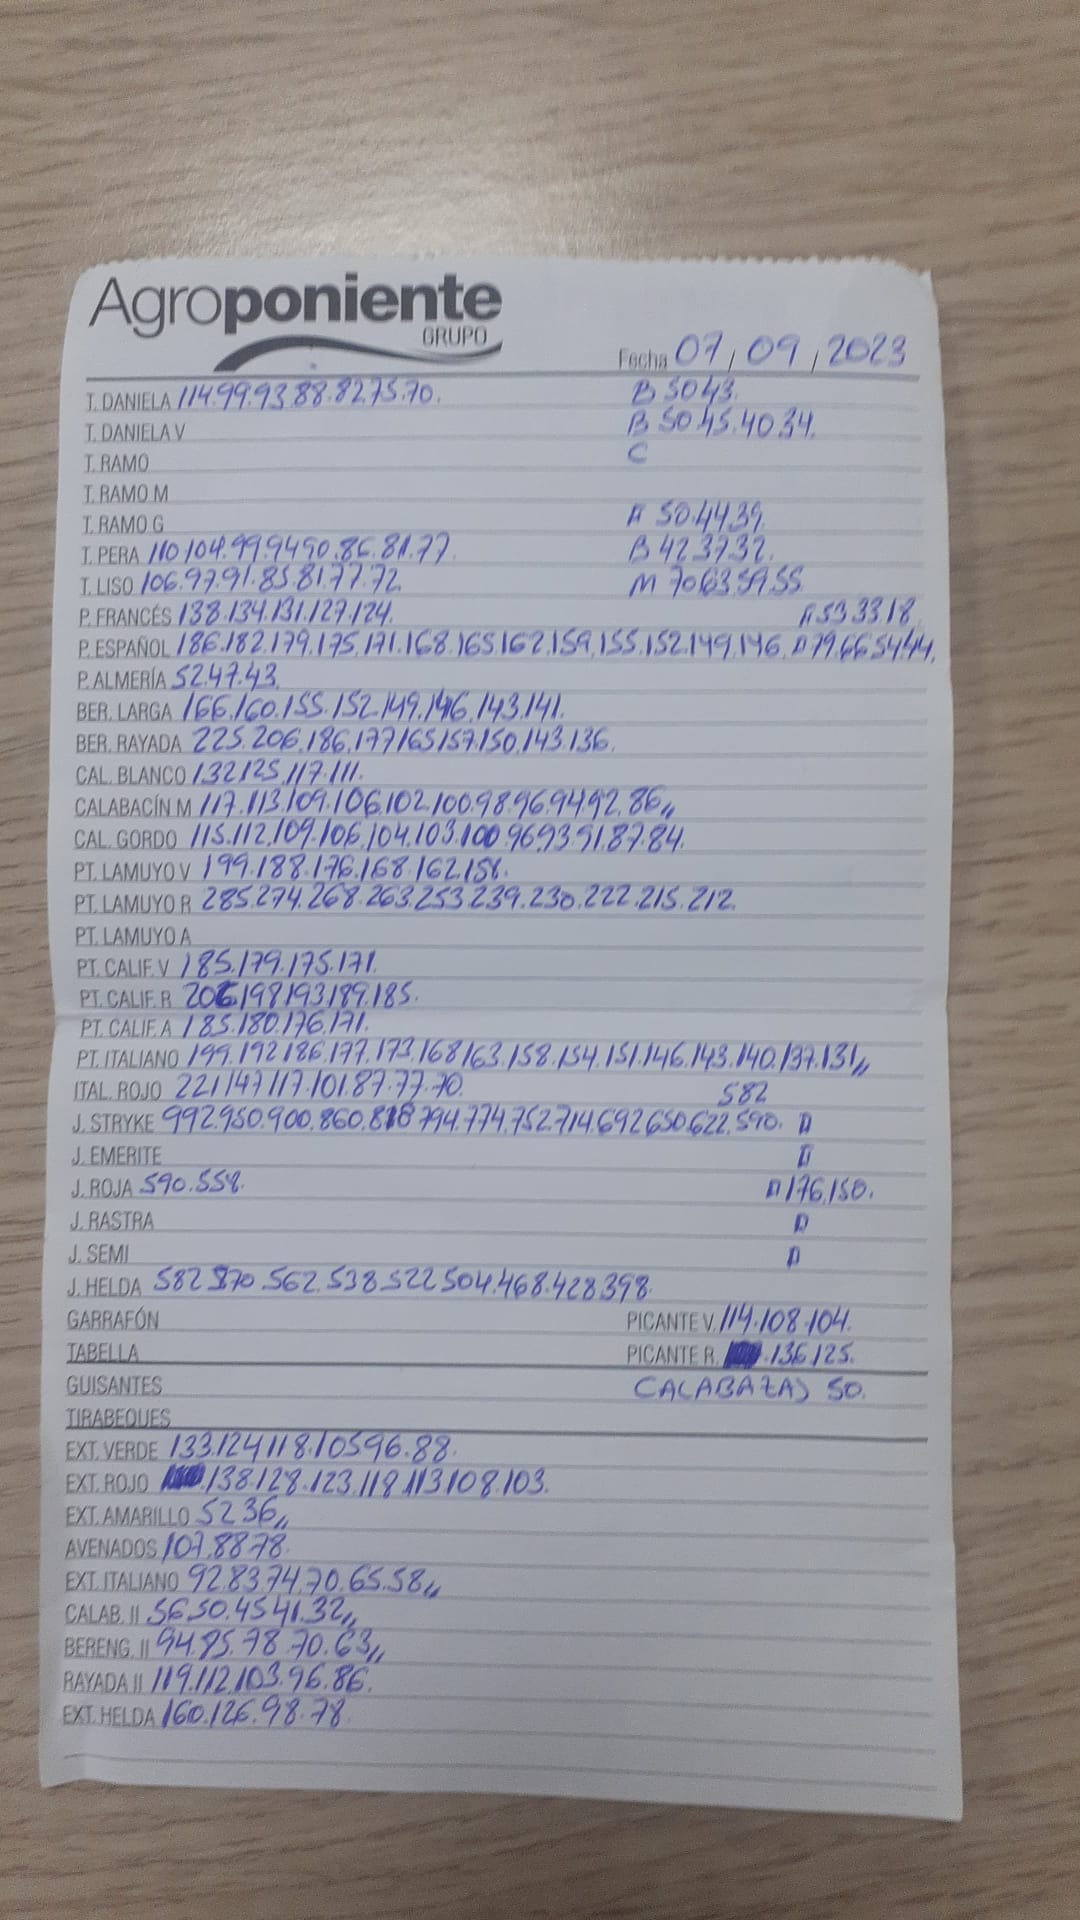 Agroponiente
GRUPO
Fecha 07/09/2023
T. DANIELA 114.99.93.88.82.75.70. B 50.43.
T. DANIELA V B 50.45.40.34.
T. RAMO C
T. RAMO M
T. RAMO G A 50.44.39.
T. PERA 110.104.99.94.90.86.81.77. B 42.37.32.
T. LISO 106.97.91.85.81.77.72. M 70.63.59.55.
P. FRANCÉS 138.134.131.127.124. A 53.33.18.
P. ESPAÑOL 186.182.179.175.171.168.165.162.159.155.152.149.146. A 79.66.54.44.
P. ALMERÍA 52.47.43.
BER. LARGA 166.160.155.152.149.146.143.141.
BER. RAYADA 225.206.186.177.165.157.150.143.136.
CAL. BLANCO 132.125.117.111.
CALABACÍN M 117.113.109.106.102.100.98.96.94.92.86,,
CAL. GORDO 115.112.109.106.104.103.100.96.93.91.87.84.
PT. LAMUYO V 199.188.176.168.162.156.
PT. LAMUYO R 285.274.268.263.253.239.230.222.215.212.
PT. LAMUYO A
PT. CALIF. V 185.179.175.171.
PT. CALIF. R 206.198.193.189.185.
PT. CALIF. A 185.180.176.171.
PT. ITALIANO 199.192.186.177.173.168.163.158.154.151.146.143.140.137.131,,
ITAL. ROJO 221.147.117.101.87.77.70. 582
J. STRYKE 992.950.900.860.818.794.774.752.714.692.650.622.590. A
J. EMERITE A
J. ROJA 590.558. A 176.150.
J. RASTRA A
J. SEMI A
J. HELDA 582.570.562.538.522.504.468.428.398.
GARRAFÓN PICANTE V. 114.108.104.
TABELLA PICANTE R. .136.125.
GUISANTES CALABAZAS 50.
TIRABEQUES
EXT. VERDE 133.124.118.105.96.88.
EXT. ROJO .138.128.123.118.113.108.103.
EXT. AMARILLO 52.36,,
AVENADOS 107.88.78.
EXT. ITALIANO 92.83.74.70.65.58,,
CALAB. II 56.50.45.41.32,,
BERENG. II 94.85.78.70.63,,
RAYADA II 119.112.103.96.86.
EXT. HELDA 160.126.98.78.